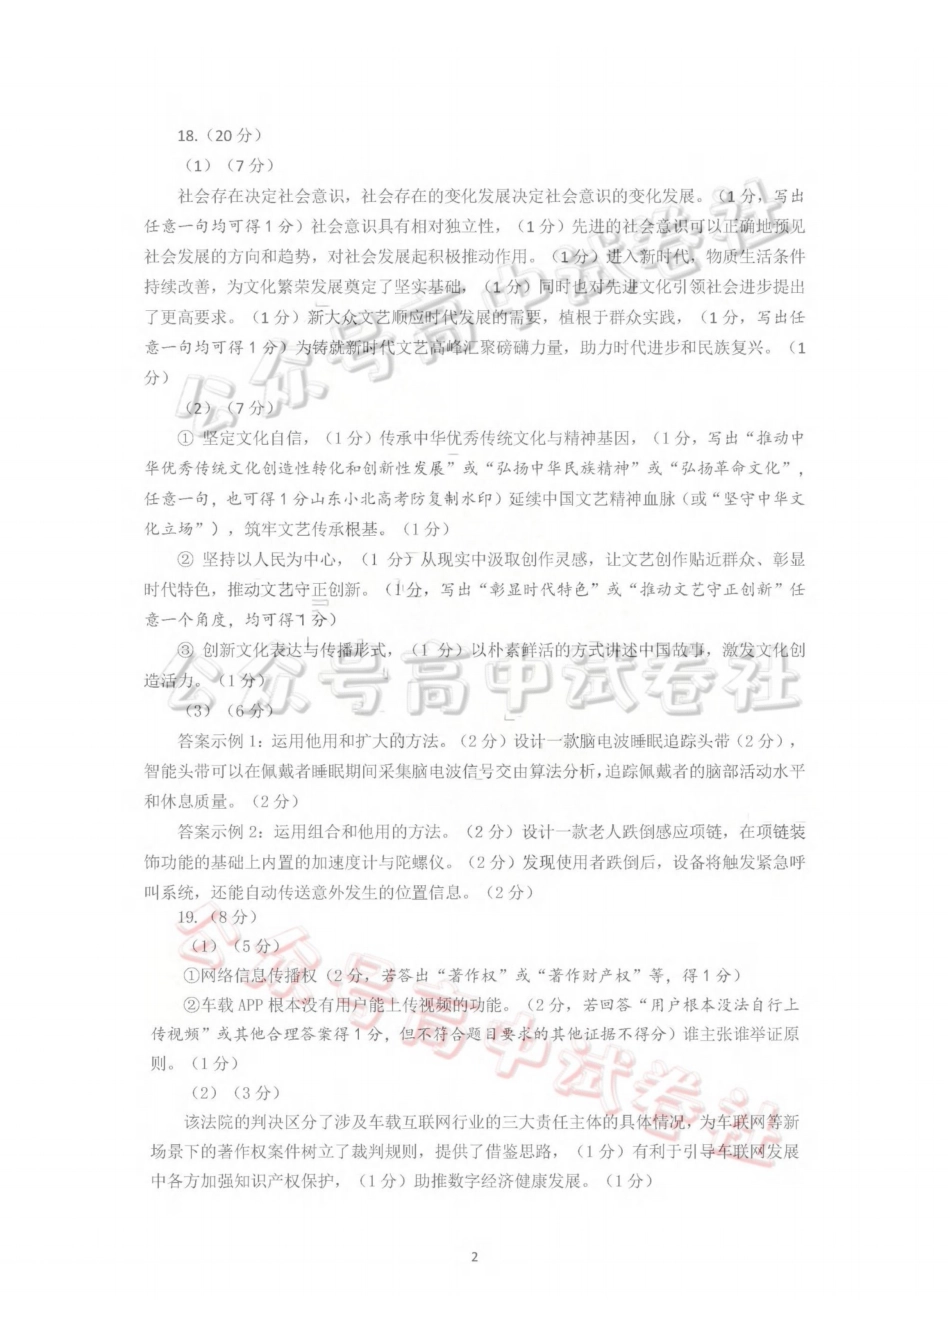 18.（20 分）
（1）（7 分）
社会存在决定社会意识，社会存在的变化发展决定社会意识的变化发展。（1 分，写出
任意一句均可得 1 分）社会意识具有相对独立性，（1 分）先进的社会意识可以正确地预见
社会发展的方向和趋势，对社会发展起积极推动作用。（1 分）进入新时代，物质生活条件
持续改善，为文化繁荣发展奠定了坚实基础，（1 分）同时也对先进文化引领社会进步提出
了更高要求。（1 分）新大众文艺顺应时代发展的需要，植根于群众实践，（1 分，写出任
意一句均可得 1 分）为铸就新时代文艺高峰汇聚磅礴力量，助力时代进步和民族复兴。（1
分）
（2）（7 分）
① 坚定文化自信，（1 分）传承中华优秀传统文化与精神基因，（1 分，写出“推动中
华优秀传统文化创造性转化和创新性发展”或“弘扬中华民族精神”或“弘扬革命文化”，
任意一句，也可得 1 分山东小北高考防复制水印）延续中国文艺精神血脉（或“坚守中华文
化立场”），筑牢文艺传承根基。（1 分）
② 坚持以人民为中心，（1 分）从现实中汲取创作灵感，让文艺创作贴近群众、彰显
时代特色，推动文艺守正创新。（1 分，写出“彰显时代特色”或“推动文艺守正创新”任
意一个角度，均可得 1 分）
③ 创新文化表达与传播形式，（1 分）以朴素鲜活的方式讲述中国故事，激发文化创
造活力。（1 分）
（3）（6 分）
答案示例 1：运用他用和扩大的方法。（2 分）设计一款脑电波睡眠追踪头带（2 分），
智能头带可以在佩戴者睡眠期间采集脑电波信号交由算法分析，追踪佩戴者的脑部活动水平
和休息质量。（2 分）
答案示例 2：运用组合和他用的方法。（2 分）设计一款老人跌倒感应项链，在项链装
饰功能的基础上内置的加速度计与陀螺仪。（2 分）发现使用者跌倒后，设备将触发紧急呼
叫系统，还能自动传送意外发生的位置信息。（2 分）
19.（8 分）
（1）（5 分）
①网络信息传播权（2 分，若答出“著作权”或“著作财产权”等，得 1 分）
②车载 APP 根本没有用户能上传视频的功能。（2 分，若回答“用户根本没法自行上
传视频”或其他合理答案得 1 分，但不符合题目要求的其他证据不得分）谁主张谁举证原
则。（1 分）
（2）（3 分）
该法院的判决区分了涉及车载互联网行业的三大责任主体的具体情况，为车联网等新
场景下的著作权案件树立了裁判规则，提供了借鉴思路，（1 分）有利于引导车联网发展
中各方加强知识产权保护，（1 分）助推数字经济健康发展。（1 分）
2
公众号高中试卷社
公众号高中试卷社
公众号高中试卷社